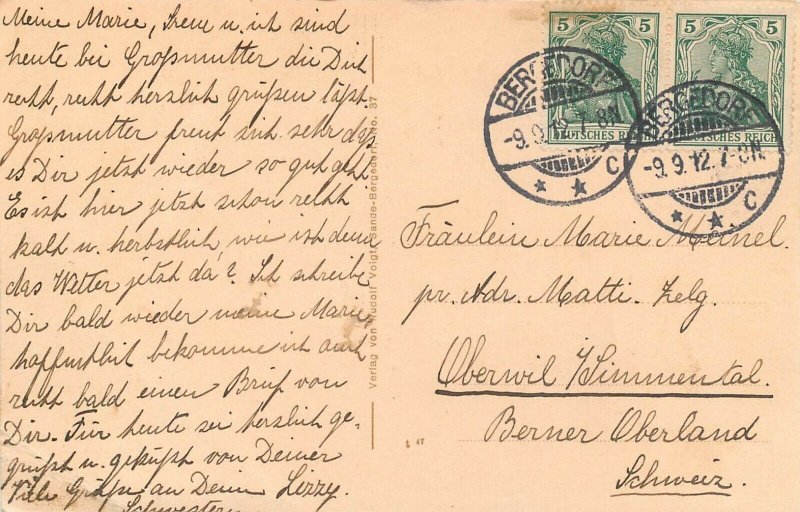 Meine Marie, Irene u. ich sind
heute bei Großmutter die Dich
recht, recht herzlich grüßen läßt.
Großmutter freut sich sehr das
es Dir jetzt wieder so gut geht
Es ist hier jetzt schon recht
kalt u. herbstlich, wie ist denn
das Wetter jetzt da? Ich schreibe
Dir bald wieder meine Marie,
hoffentlich bekomme ich auch
recht bald einen Brief von
Dir. Für heute sei herzlich ge-
grüßt u. geküßt von Deiner
Lizzy.
Viele Grüße an Deine
Schwestern
Verlag von Rudolf Voigt, Sande-Bergedorf. No. 37
5 5
DEUTSCHES REICH
5 5
DEUTSCHES REICH
BERGEDORF
-9.9.12. 7-8N.
C
BERGEDORF
-9.9.12. 7-8N.
C
Fräulein Marie Meinel.
pr. Adr. Matti-Zelg.
Oberwil i/Simmental.
Berner Oberland
Schweiz.